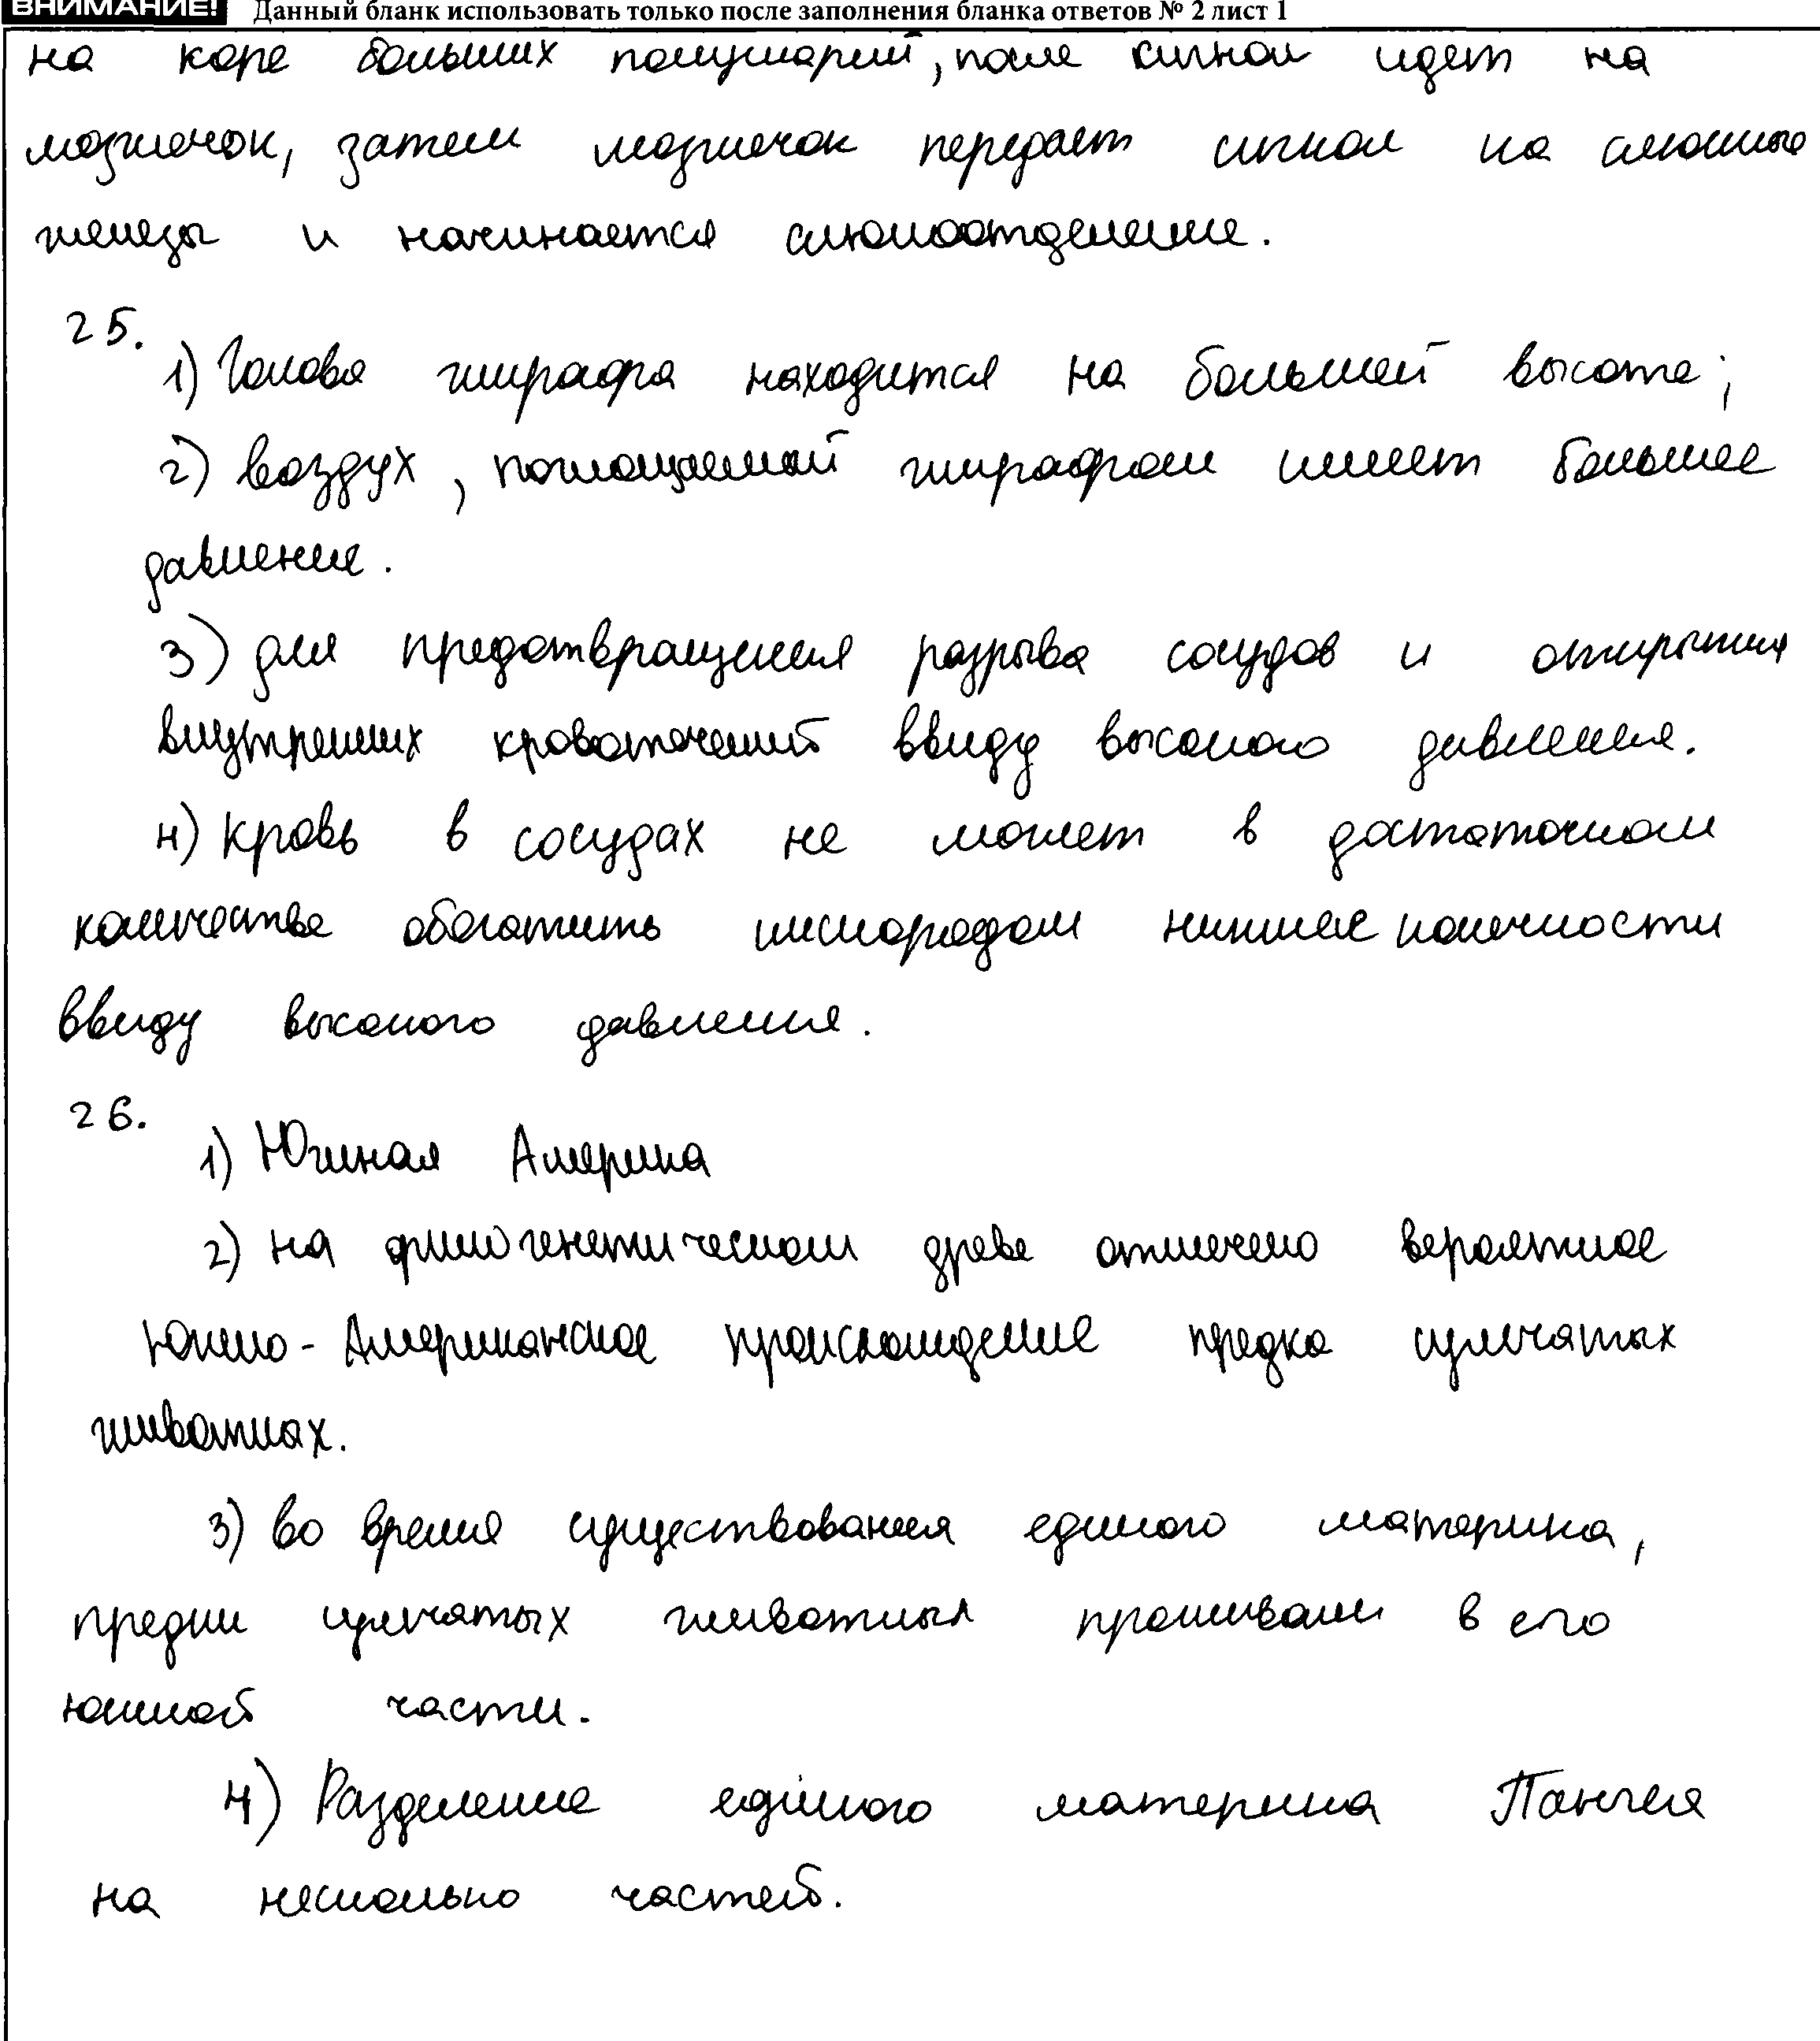 ВНИМАНИЕ! Данный бланк использовать только после заполнения бланка ответов № 2 лист 1
на коре больших полушарий, после сигнал идет на
мозжечок, затем мозжечок передает сигнал на слюнные
железы и начинается слюноотделение.
25.
1) Голова жирафа находится на большей высоте;
2) воздух, поглощаемый жирафом имеет большее
давление.
3) для предотвращения разрыва сосудов и открытия
внутренних кровотечений ввиду высокого давления.
4) кровь в сосудах не может в достаточном
количестве обогатить кислородом нижние конечности
ввиду высокого давления.
26.
1) Южная Америка
2) на филогенетическом древе отмечено вероятное
Южно-Американское происхождение предка сумчатых
животных.
3) во время существования единого материка,
предки сумчатых животных проживали в его
южной части.
4) Разделение единого материка Пангея
на несколько частей.